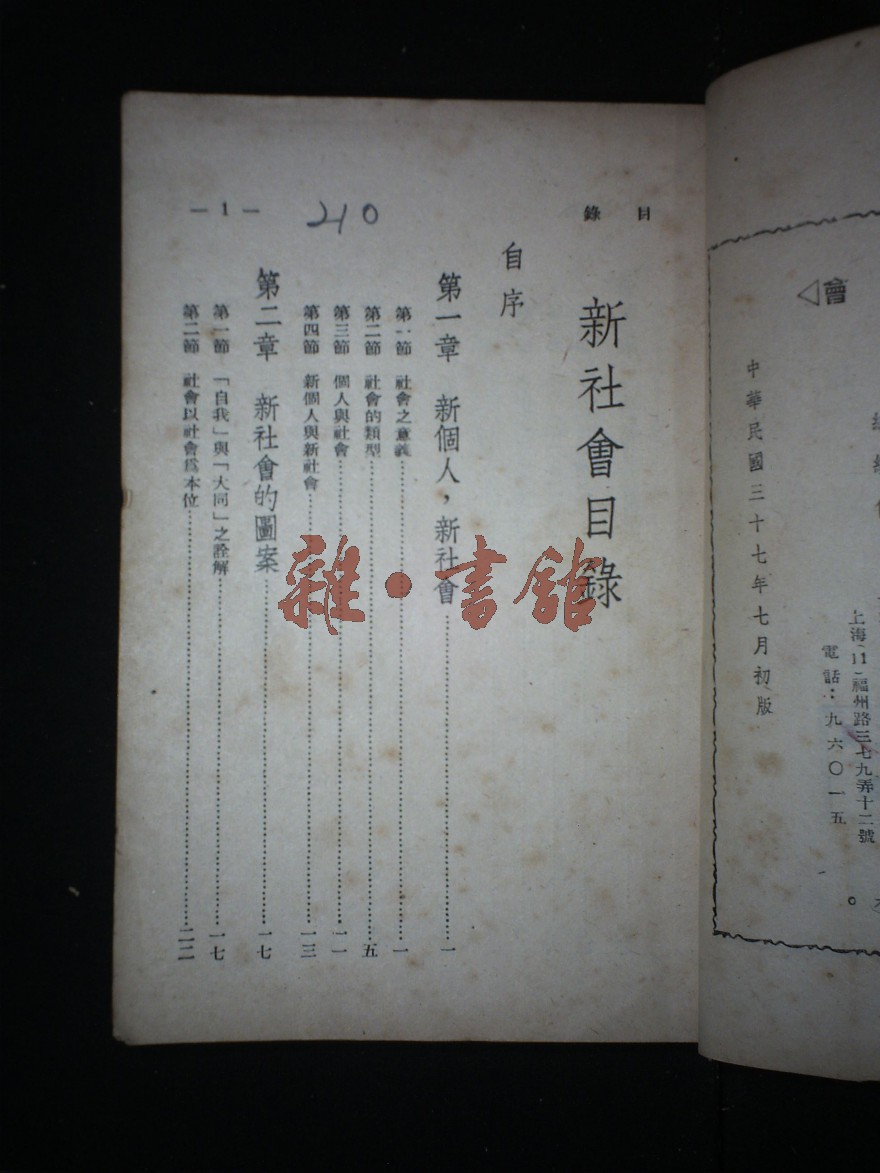 會◁
中華民國三十七年七月初版
上海(11)福州路三七九弄十二號
電話：九六〇一五
目錄
新社會目錄
自序
第一章 新個人，新社會……一
第一節 社會之意義……一
第二節 社會的類型……五
第三節 個人與社會……一一
第四節 新個人與新社會……一三
第二章 新社會的圖案……一七
第一節 「自我」與「大同」之詮解……一七
第二節 社會以社會爲本位……二二
— 1 —
210
雜·書館